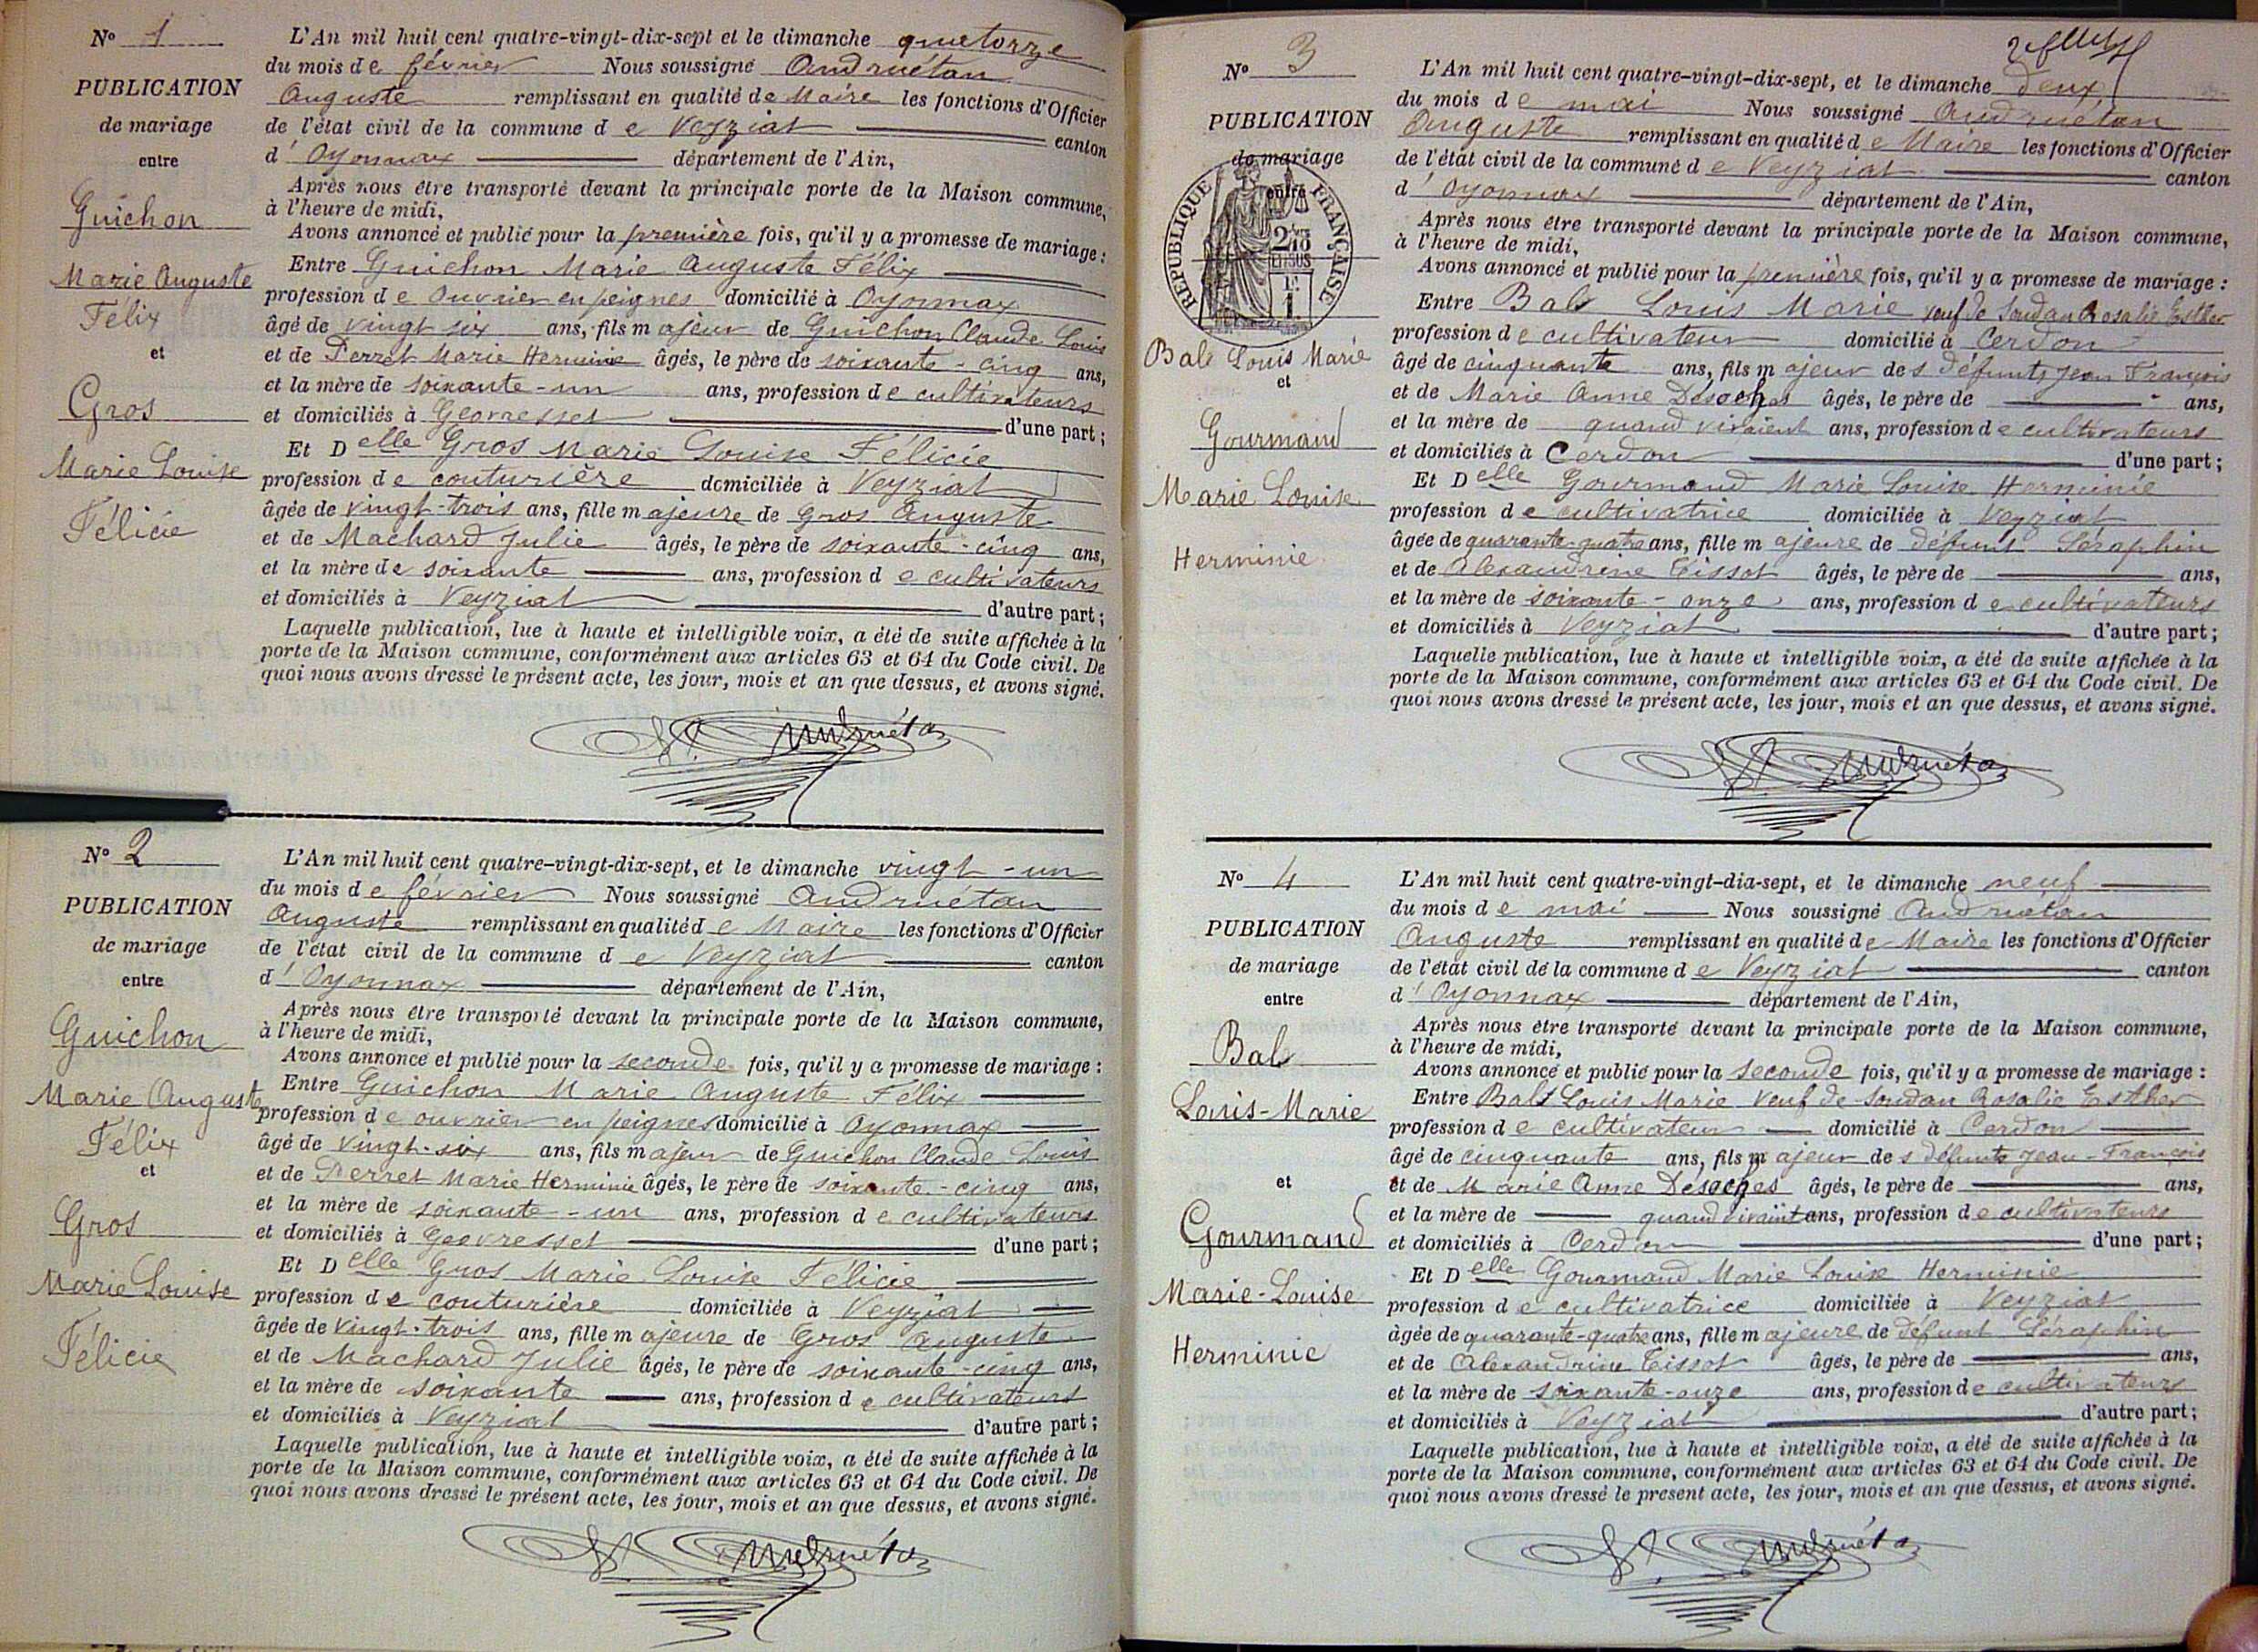 N° 1
PUBLICATION
de mariage
entre
Guichon
Marie Auguste
Félix
et
Gros
Marie Louise
Félicie
L'An mil huit cent quatre-vingt-dix-sept et le dimanche quatorze
du mois de février Nous soussigné Andruétan
Auguste remplissant en qualité de Maire les fonctions d'Officier
de l'état civil de la commune de Veyziat canton
d'Oyonnax département de l'Ain,
Après nous être transporté devant la principale porte de la Maison commune,
à l'heure de midi,
Avons annoncé et publié pour la première fois, qu'il y a promesse de mariage :
Entre Guichon Marie Auguste Félix
profession de ouvrier en peignes domicilié à Oyonnax
âgé de vingt six ans, fils majeur de Guichon Claude Louis
et de Perret Marie Herminie âgés, le père de soixante-cinq ans,
et la mère de soixante-un ans, profession de cultivateurs
et domiciliés à Geovresset d'une part ;
Et Delle Gros Marie Louise Félicie
profession de couturière domiciliée à Veyziat
âgée de vingt-trois ans, fille majeure de Gros Auguste
et de Machard Julie âgés, le père de soixante-cinq ans,
et la mère de soixante ans, profession de cultivateurs
et domiciliés à Veyziat d'autre part ;
Laquelle publication, lue à haute et intelligible voix, a été de suite affichée à la
porte de la Maison commune, conformément aux articles 63 et 64 du Code civil. De
quoi nous avons dressé le présent acte, les jour, mois et an que dessus, et avons signé.
Andruétan
N° 2
PUBLICATION
de mariage
entre
Guichon
Marie Auguste
Félix
et
Gros
Marie Louise
Félicie
L'An mil huit cent quatre-vingt-dix-sept, et le dimanche vingt-un
du mois de février Nous soussigné Andruétan
Auguste remplissant en qualité de Maire les fonctions d'Officier
de l'état civil de la commune de Veyziat canton
d'Oyonnax département de l'Ain,
Après nous être transporté devant la principale porte de la Maison commune,
à l'heure de midi,
Avons annoncé et publié pour la seconde fois, qu'il y a promesse de mariage :
Entre Guichon Marie Auguste Félix
profession de ouvrier en peignes domicilié à Oyonnax
âgé de vingt-six ans, fils majeur de Guichon Claude Louis
et de Perret Marie Herminie âgés, le père de soixante-cinq ans,
et la mère de soixante-un ans, profession de cultivateurs
et domiciliés à Geovresset d'une part ;
Et Delle Gros Marie Louise Félicie
profession de couturière domiciliée à Veyziat
âgée de vingt-trois ans, fille majeure de Gros Auguste
et de Machard Julie âgés, le père de soixante-cinq ans,
et la mère de soixante ans, profession de cultivateurs
et domiciliés à Veyziat d'autre part ;
Laquelle publication, lue à haute et intelligible voix, a été de suite affichée à la
porte de la Maison commune, conformément aux articles 63 et 64 du Code civil. De
quoi nous avons dressé le présent acte, les jour, mois et an que dessus, et avons signé.
Andruétan
N° 3
PUBLICATION
de mariage
entre
RÉPUBLIQUE FRANÇAISE
2/10 EN SUS
1F
Bals Louis Marie
et
Gourmand
Marie Louise
Herminie
L'An mil huit cent quatre-vingt-dix-sept, et le dimanche deux
du mois de mai Nous soussigné Andruétan
Auguste remplissant en qualité de Maire les fonctions d'Officier
de l'état civil de la commune de Veyziat canton
d'Oyonnax département de l'Ain,
Après nous être transporté devant la principale porte de la Maison commune,
à l'heure de midi,
Avons annoncé et publié pour la première fois, qu'il y a promesse de mariage :
Entre Bals Louis Marie veuf de Soudan Rosalie Esther
profession de cultivateur domicilié à Cerdon
âgé de cinquante ans, fils majeur des défunts Jean François
et de Marie Anne Désoches âgés, le père de ans,
et la mère de quand vivaient ans, profession de cultivateurs
et domiciliés à Cerdon d'une part ;
Et Delle Gourmand Marie Louise Herminie
profession de cultivatrice domiciliée à Veyziat
âgée de quarante-quatre ans, fille majeure de défunt Séraphin
et de Alexandrine Tissot âgés, le père de ans,
et la mère de soixante-onze ans, profession de cultivateurs
et domiciliés à Veyziat d'autre part ;
Laquelle publication, lue à haute et intelligible voix, a été de suite affichée à la
porte de la Maison commune, conformément aux articles 63 et 64 du Code civil. De
quoi nous avons dressé le présent acte, les jour, mois et an que dessus, et avons signé.
Andruétan
N° 4
PUBLICATION
de mariage
entre
Bals
Louis-Marie
et
Gourmand
Marie-Louise
Herminie
L'An mil huit cent quatre-vingt-dia-sept, et le dimanche neuf
du mois de mai Nous soussigné Andruétan
Auguste remplissant en qualité de Maire les fonctions d'Officier
de l'état civil de la commune de Veyziat canton
d'Oyonnax département de l'Ain,
Après nous être transporté devant la principale porte de la Maison commune,
à l'heure de midi,
Avons annoncé et publié pour la seconde fois, qu'il y a promesse de mariage :
Entre Bals Louis Marie veuf de Soudan Rosalie Esther
profession de cultivateur domicilié à Cerdon
âgé de cinquante ans, fils majeur des défunts Jean-François
et de Marie Anne Désoches âgés, le père de ans,
et la mère de quand vivaient ans, profession de cultivateurs
et domiciliés à Cerdon d'une part ;
Et Delle Gourmand Marie Louise Herminie
profession de cultivatrice domiciliée à Veyziat
âgée de quarante-quatre ans, fille majeure de défunt Séraphin
et de Alexandrine Tissot âgés, le père de ans,
et la mère de soixante-onze ans, profession de cultivateurs
et domiciliés à Veyziat d'autre part ;
Laquelle publication, lue à haute et intelligible voix, a été de suite affichée à la
porte de la Maison commune, conformément aux articles 63 et 64 du Code civil. De
quoi nous avons dressé le présent acte, les jour, mois et an que dessus, et avons signé.
Andruétan